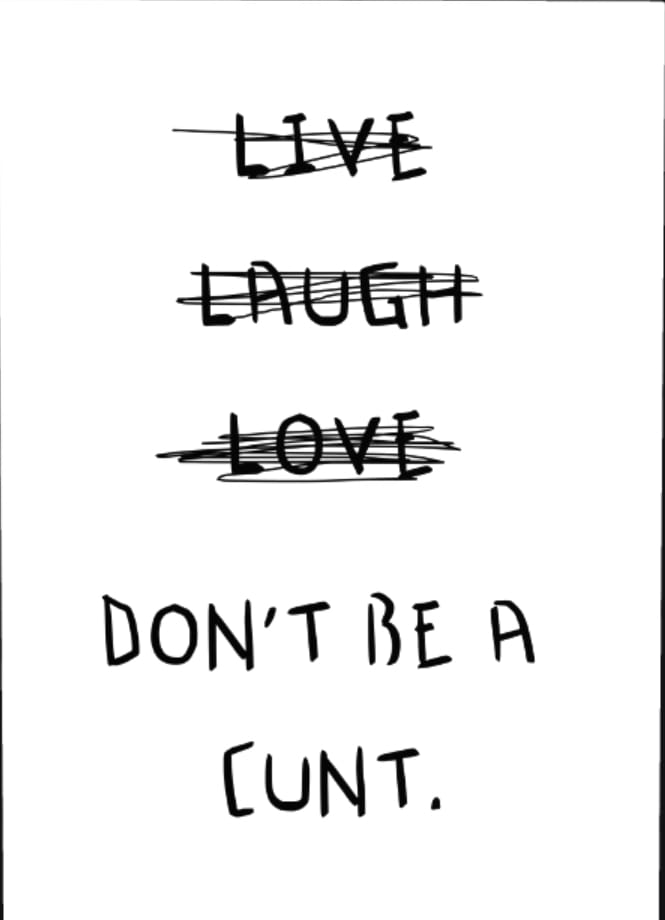 LIVE
LAUGH
LOVE
DON'T BE A
CUNT.